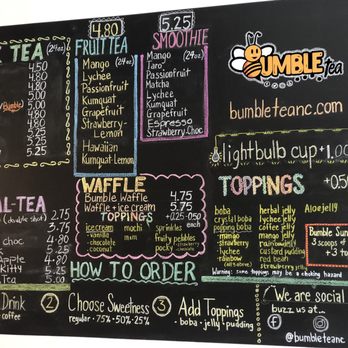 K TEA (24oz)
4.50
4.80
4.50
Bumble) 5.00
5.00
5.25
5.25
AL-TEA
2.75
3.75
choc 4.80
5.25
Apple 4.80
Kitty 5.25
Tea 5.00
4.80
FRUIT TEA
(24oz)
Mango
Lychee
Passionfruit
Kumquat
Grapefruit
Strawberry-
Lemon
Hawaiian
Kumquat-Lemon
5.25
SMOOTHIE
(24oz)
Mango
Taro
Passionfruit
Matcha
Lychee
Kumquat
Grapefruit
Espresso
Strawberry Choc
BUMBLE
tea
bumbleteanc.com
lightbulb cup +1.00
WAFFLE
Bumble Waffle 4.75
Waffle + ice cream 5.75
TOPPINGS +0.25-0.50
each
ice cream
vanilla
chocolate
coconut
mochi
sprinkles
fruity pebbles
pocky
TOPPINGS +0.50
boba
crystal boba
popping boba
mango
strawberry
lychee
herbal jelly
lychee jelly
coffee jelly
rainbow jelly
custard pudding
red bean
Aloe jelly
Bumble Sun
3 scoops of
+3 to
Warning: some toppings may be a choking hazard
HOW TO ORDER
Drink
coffee
2 Choose Sweetness
regular • 75% • 50% • 25%
3 Add Toppings
boba • jelly • pudding
We are social
buzz us at...
@bumbleteanc